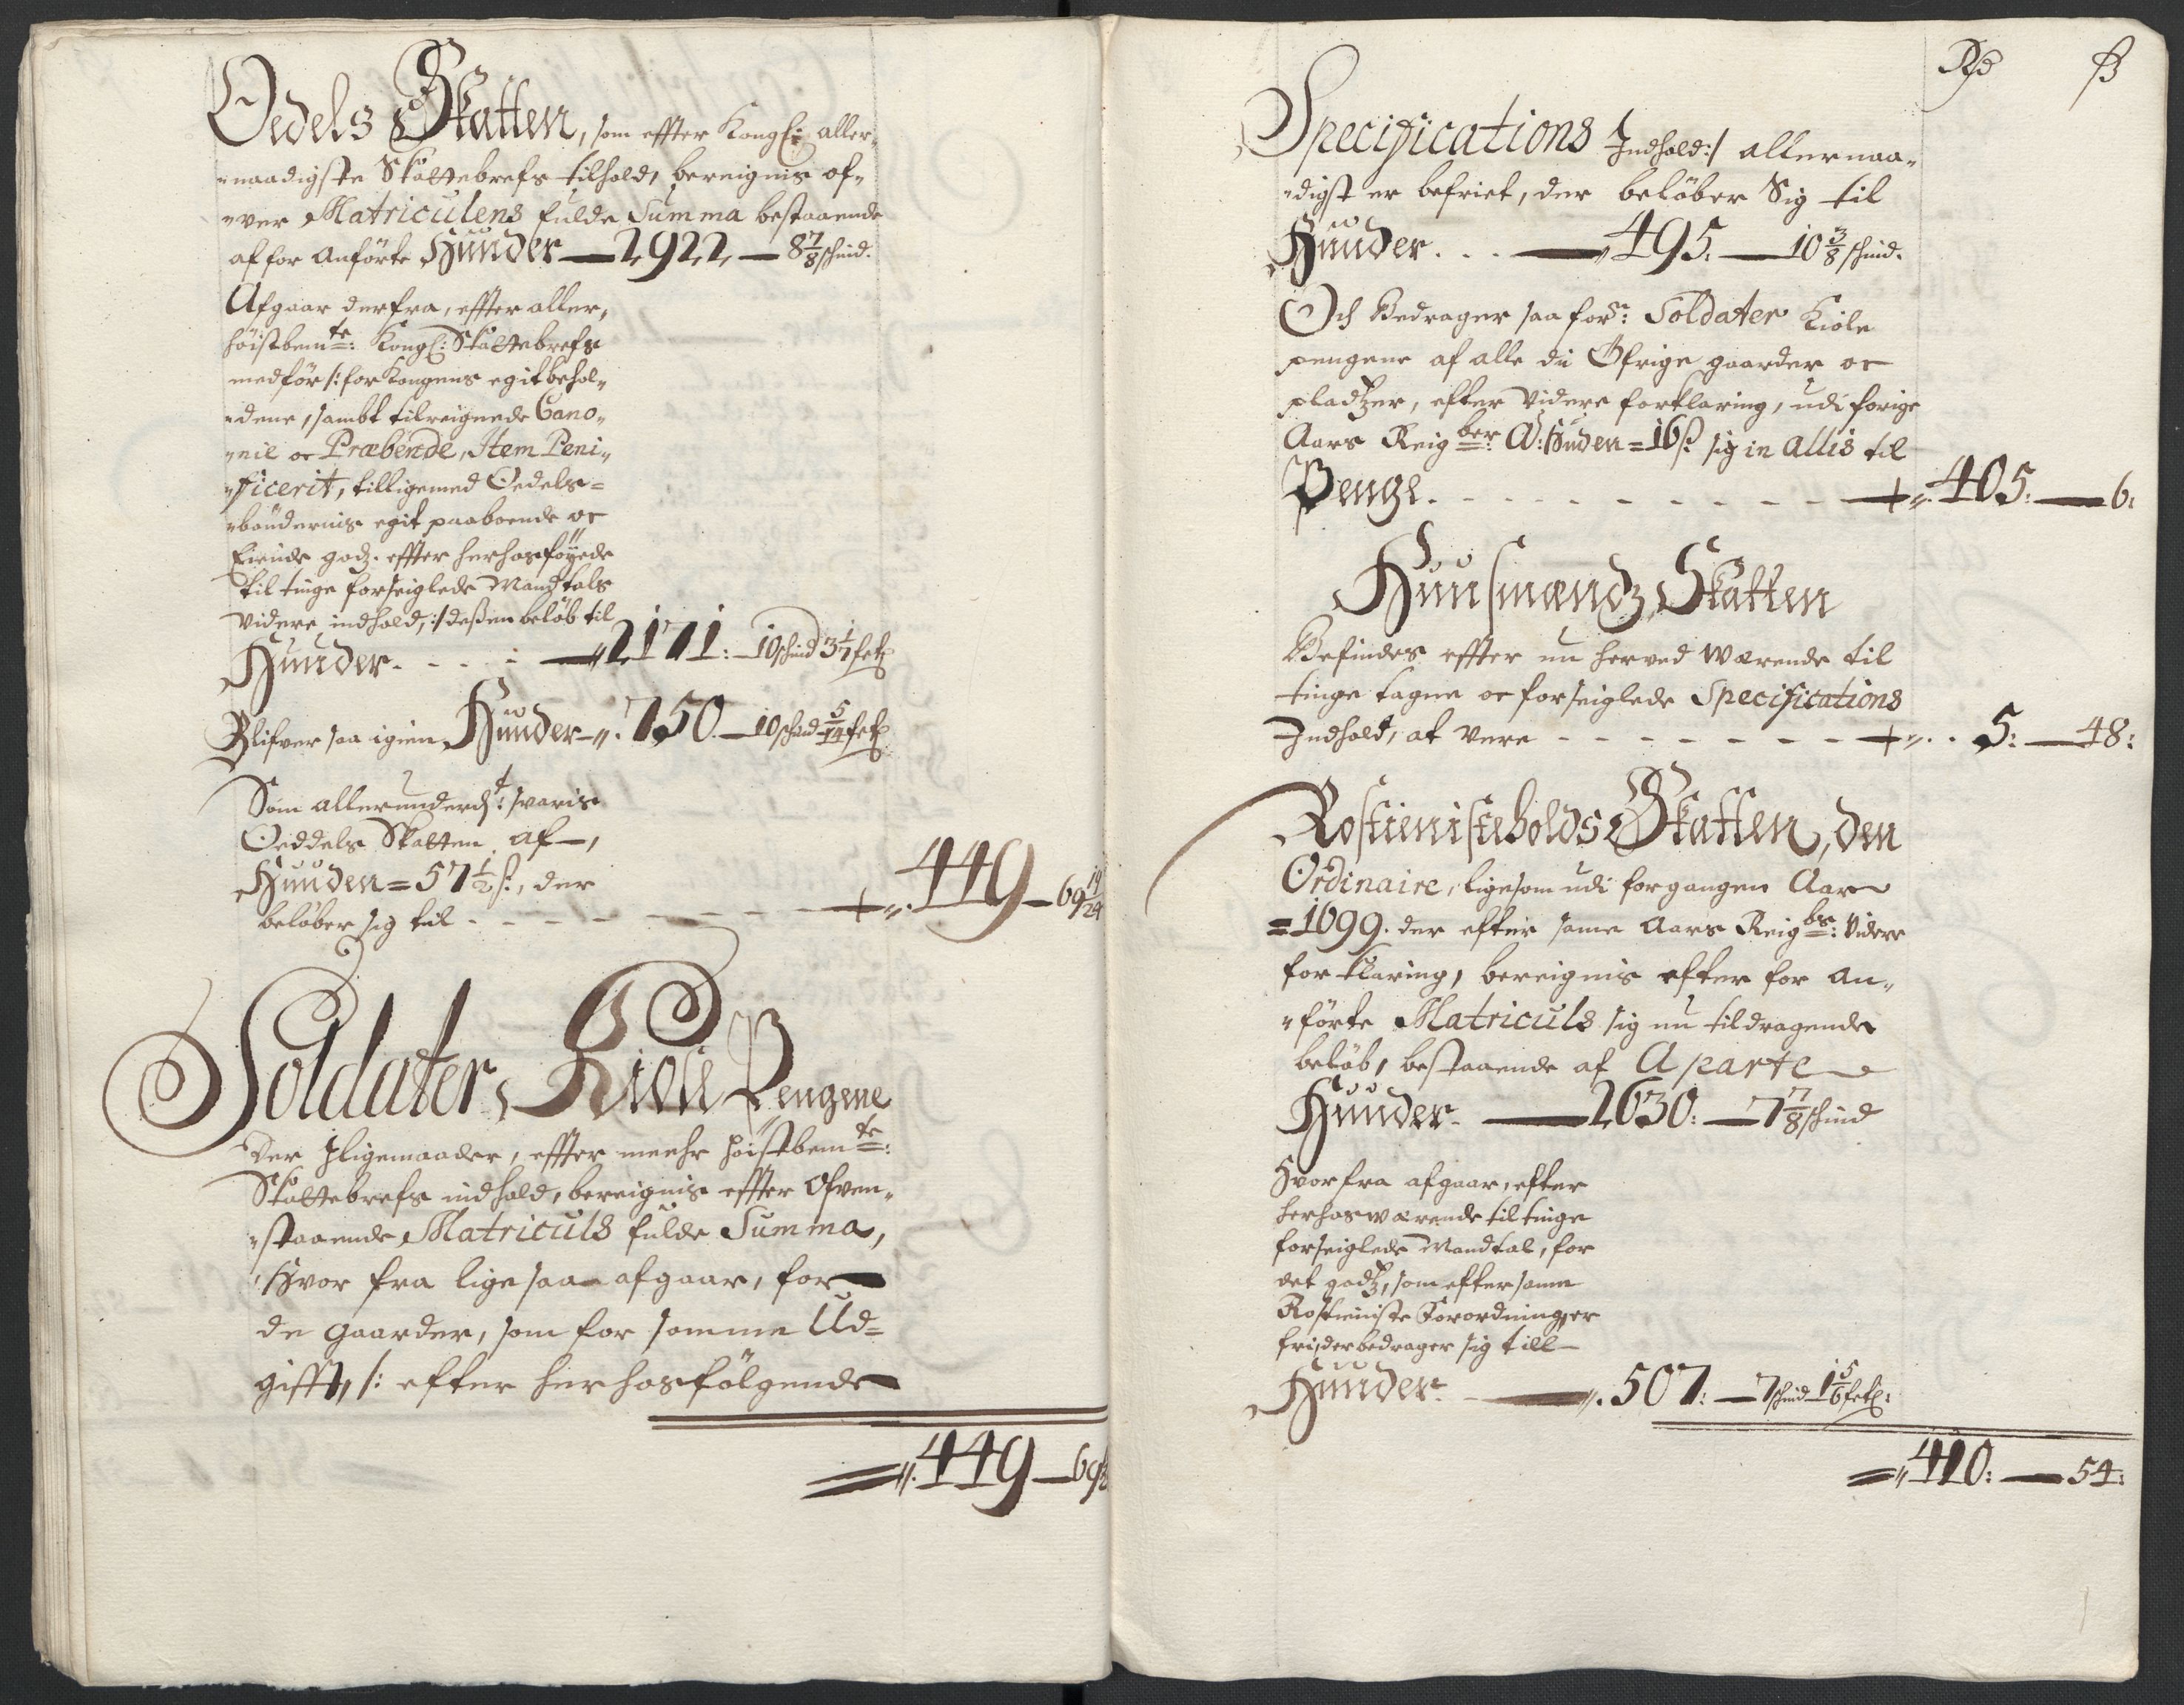 Oedels Skatten, som effter Kongl: aller-
naadigste Skattebrefs tilhold, bereignis of-
ver Matriculens fulde Summa bestaaende
af for Anførte Huuder — 2922 — 8 7/8 schind.
Afgaar derfra, effter aller-
høistbem:te Kongl: Skattebrefs
medfør /: for Kongens egit behol-
dene, sambt tilreignede Cano-
nic oc Præbende, Item Peni-
ficerit, tilligemed Oedels-
bøndernis egit paaboende oc
Eiende godz. effter herhosføyede
til tinge forseiglede Mandtals
videre indhold, :/ dessen beløb til
Huuder - - - - — 2171: — 10 schind 3 1/7 fek
Blifver saa igien Huuder — 750. — 10 schind 5/14 fek
Som allerunderd:t svaris
Oeddels Skatten af —,
Huuden = 57 1/2 ß., der
beløber sig til - - - - - - - - 449 — 69 19/24
Soldater Kiole Pengene
Der Iligemaader, effter meehr høistbem:te
Skattebrefs indhold, bereignis effter Ofven-
staaende Matriculs fulde Summa,
Hvor fra lige saa afgaar, for
de gaarder, som for somme Ud-
gifft, /: efter herhosfølgende
449 — 69
Rd ß
Specifications Indhold :/ allernaa-
digst er befriet, der beløber Sig til
Huuder. . . — 495. — 10 3/8 schind.
Och Bedrager saa for:n Soldater Kiole
pengene af alle di Øfrige gaarder oc
pladtzer, efter videre forklaring, udi forige
Aars Reig:ber A: Huden = 16 ß sig in Allis til
Penge. - - - - - - - - - - 405: — 6:
Huusmændz Skatten
Befindes effter nu herved Værende til
tinge tagne oc forseiglede Specifications
Indhold, at vere - - - - - - - . . 5: — 48:
Rostienisteholds Skatten, den
Ordinaire, ligesom udi forgangen Aar
= 1699. der efter same Aars Reig:bs Videre
forklaring, bereignis efter for an-
førte Matriculs sig nu tildragende
beløb, bestaaende af Aparte
Huuder. — 2630: — 7 7/8 schind
Hvorfra afgaar, efter
herhos værende til tinge
forseiglede Mandtal, for
det godtz, som efter samme
Rostieniste Forordning, er
fri, der bedrager sig till
Huuder - — 507: — 7 schind 1 5/6 fek:
410: — 54: